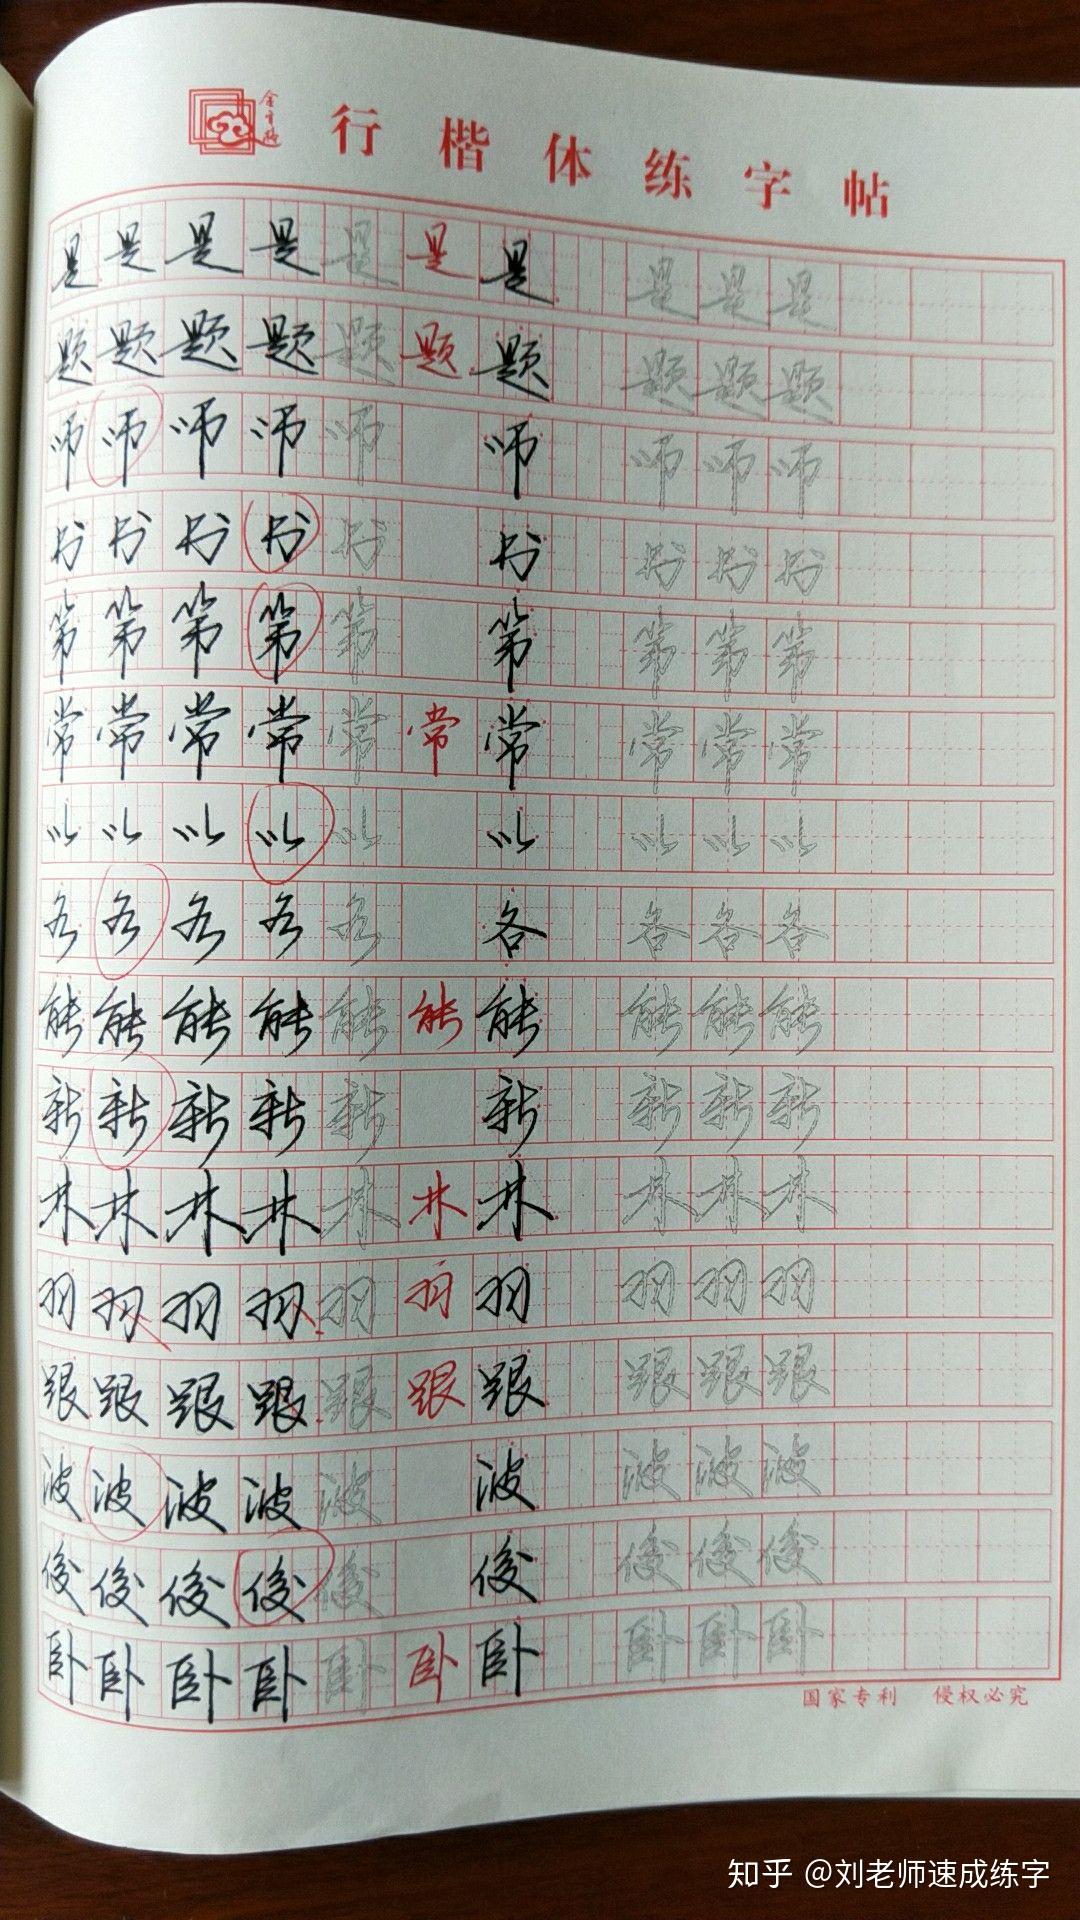 行楷体练字帖
是 是 是 是 是 是 是 是 是 是
题 题 题 题 题 题 题 题 题 题
师 师 师 师 师 师 师 师 师
书 书 书 书 书 书 书 书 书
第 第 第 第 第 第 第 第 第
常 常 常 常 常 常 常 常 常 常
以 以 以 以 以 以 以 以 以
各 各 各 各 各 各 各 各 各
能 能 能 能 能 能 能 能 能 能
新 新 新 新 新 新 新 新 新
林 林 林 林 林 林 林 林 林 林
羽 羽 羽 羽 羽 羽 羽 羽 羽 羽
跟 跟 跟 跟 跟 跟 跟 跟 跟 跟
波 波 波 波 波 波 波 波 波
俊 俊 俊 俊 俊 俊 俊 俊 俊
卧 卧 卧 卧 卧 卧 卧 卧 卧 卧
国家专利 侵权必究
知乎 @刘老师速成练字